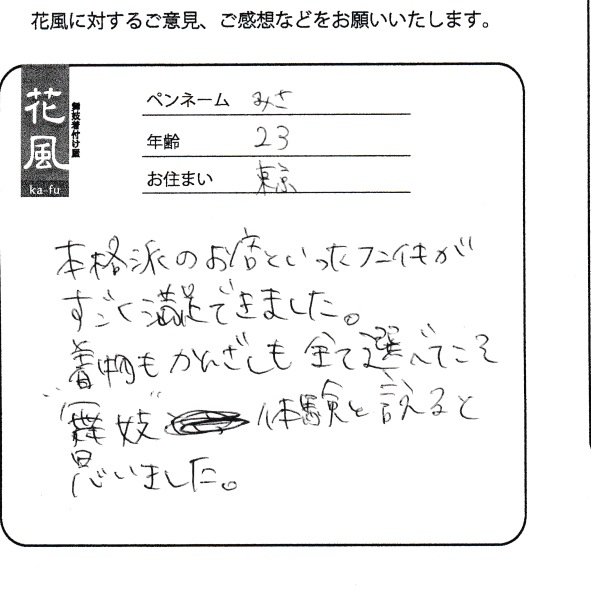 花風に対するご意見、ご感想などをお願いいたします。
花風
舞妓着付け屋
ka-fu
ペンネーム みさ
年齢 23
お住まい 東京
本格派のお店といったフンイキが
すごく満足できました。
着物もかんざしも全て選べてこそ
"舞妓" 体験と言えると
思いました。